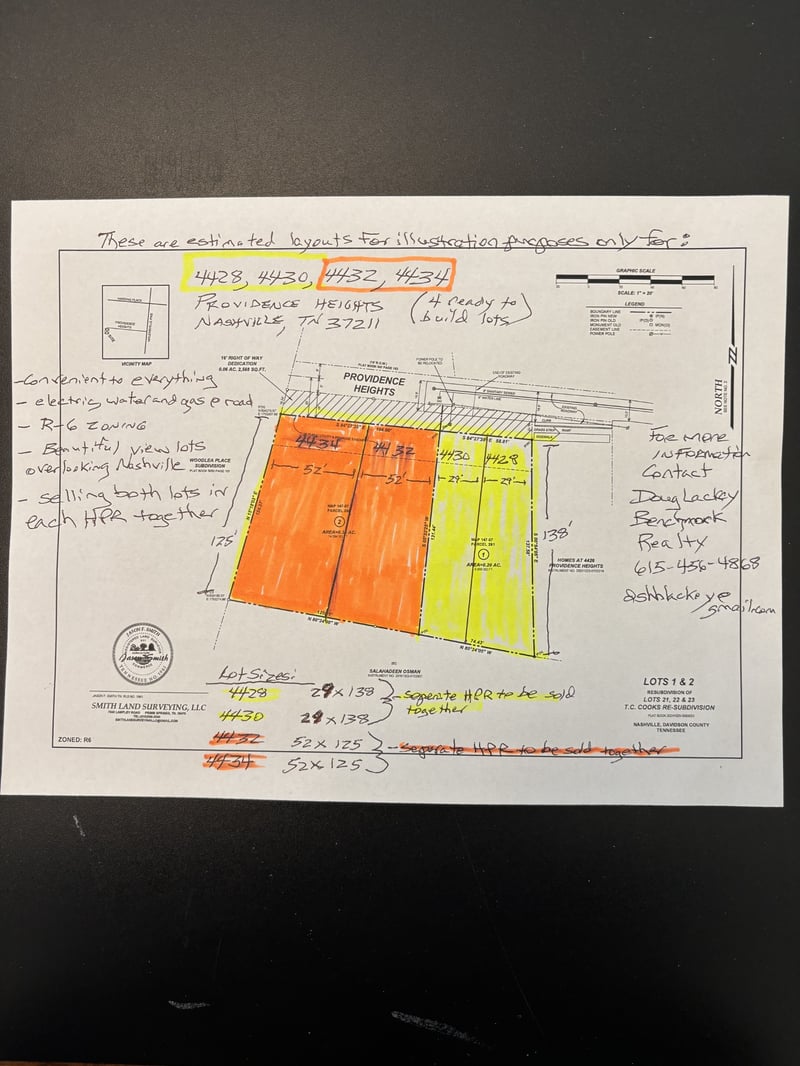 These are estimated layouts for illustration purposes only for:
4428, 4430, 4432, 4434
PROVIDENCE HEIGHTS
NASHVILLE, TN 37211
(4 ready to
build lots)
GRAPHIC SCALE
SCALE: 1" = 20'
LEGEND
BOUNDARY LINE
IRON PIN NEW
IRON PIN OLD
MONUMENT OLD
EASEMENT LINE
POWER POLE
VICINITY MAP
NORTH
16' RIGHT OF WAY
DEDICATION
POWER POLE TO
BE RELOCATED
END OF EXISTING
ROADWAY
PROVIDENCE
HEIGHTS
- Convenient to everything
- electric, water and gas @ road
- R-6 ZONING
- Beautiful view lots
overlooking Nashville
- selling both lots in
each HPR together
WOOGLEA PLACE
SUBDIVISION
4434
4432
4430
4428
52'
52'
29'
29'
125'
138'
MAP 147-07
②
MAP 147-07
PARCEL 261
①
AREA=0.20 AC.
HOMES AT 4426
PROVIDENCE HEIGHTS
For more
INFORMATION
Contact
Doug Lackey
Benchmark
Realty
615-456-4868
gmail.com
SALAHADEEN OSMAN
Lot Sizes:
4428 29 x 138
4430 29 x 138
- seperate HPR to be sold
together
4432 52 x 125
4434 52 x 125
- seperate HPR to be sold together
JASON F. SMITH
SMITH LAND SURVEYING, LLC
ZONED: R6
LOTS 1 & 2
RESUBDIVISION OF
LOTS 21, 22 & 23
T.C. COOKS RE-SUBDIVISION
NASHVILLE, DAVIDSON COUNTY
TENNESSEE